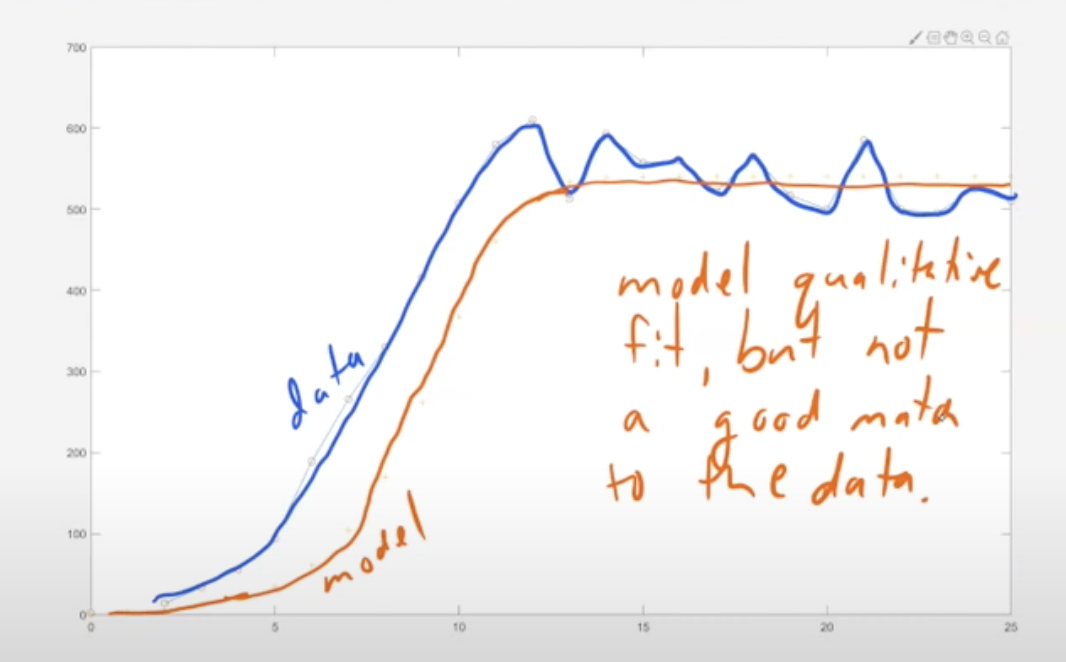 700
600
500
400
300
200
100
0
0 5 10 15 20 25
data
model
model qualitative
fit, but not
a good match
to the data.